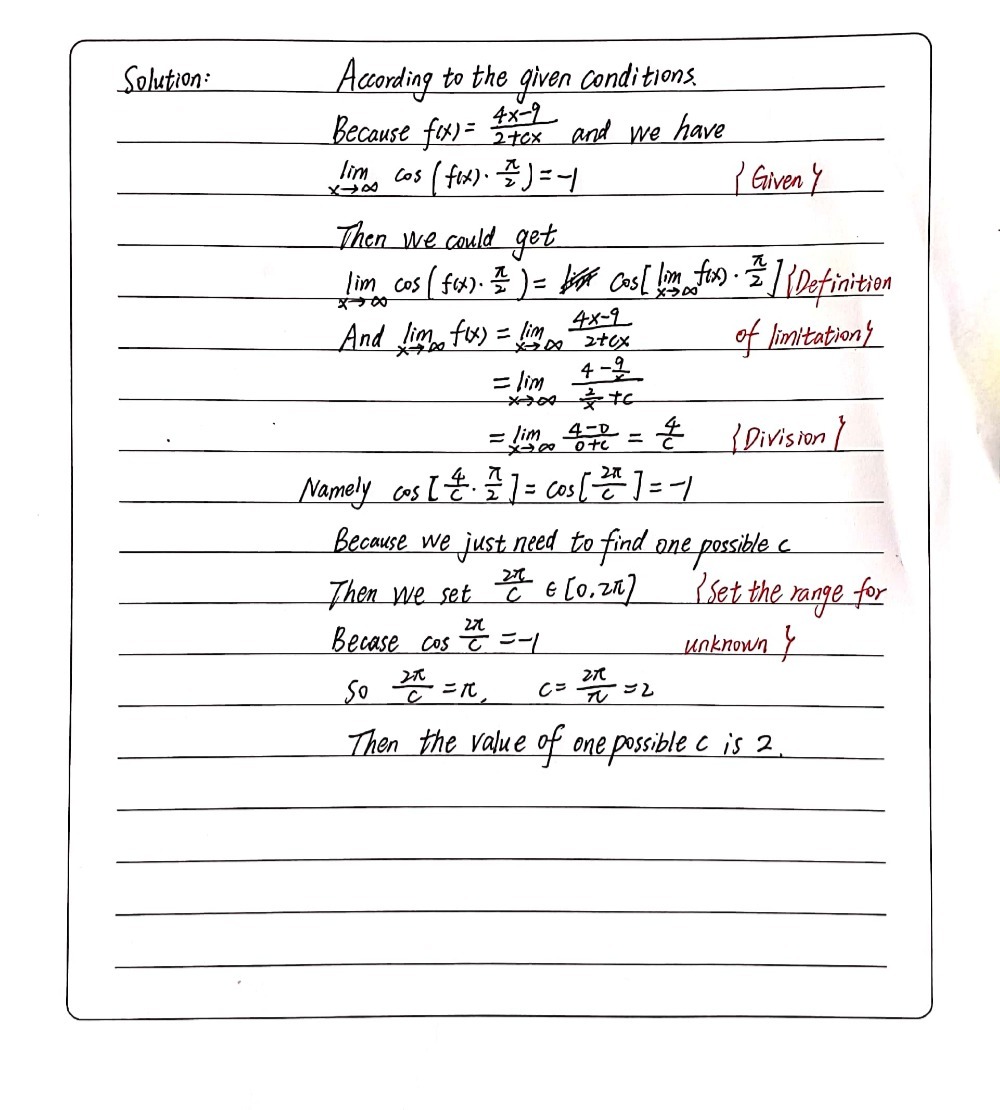 Solution: According to the given conditions.
Because f(x) = (4x-9)/(2+cx) and we have
lim x→∞ cos (f(x)·π/2) = -1 {Given}
Then we could get
lim x→∞ cos (f(x)·π/2) = cos[lim x→∞ f(x)·π/2] {Definition
And lim x→∞ f(x) = lim x→∞ (4x-9)/(2+cx) of limitation}
= lim x→∞ (4-9/x)/(2/x+c)
= lim x→∞ (4-0)/(0+c) = 4/c {Division}
Namely cos[4/c·π/2] = cos[2π/c] = -1
Because we just need to find one possible c
Then we set 2π/c ∈ [0, 2π] {Set the range for
Becase cos 2π/c = -1 unknown}
So 2π/c = π, c = 2π/π = 2
Then the value of one possible c is 2.